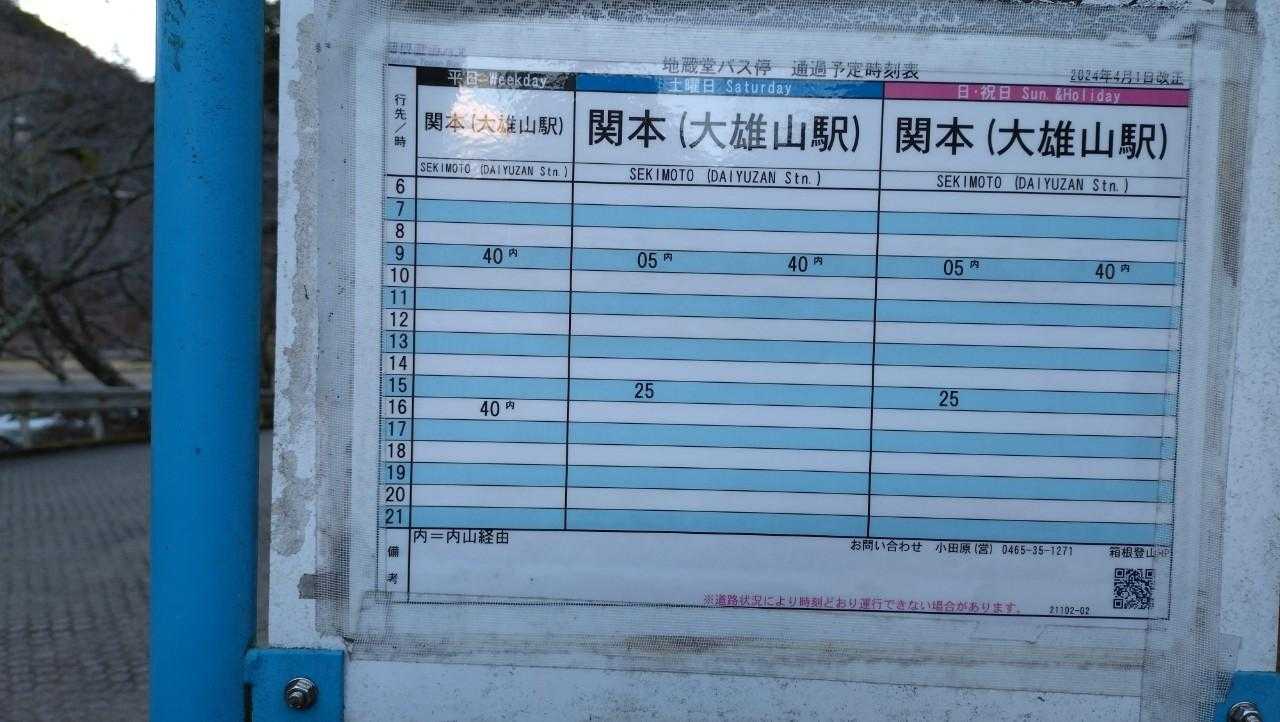 地蔵堂バス停 通過予定時刻表
2024年4月1日改正
行先/時 平日 Weekday 土曜日 Saturday 日・祝日 Sun.&Holiday
関本(大雄山駅) 関本(大雄山駅) 関本(大雄山駅)
SEKIMOTO (DAIYUZAN Stn.) SEKIMOTO (DAIYUZAN Stn.) SEKIMOTO (DAIYUZAN Stn.)
6
7
8
9 40内 05内 40内 05内 40内
10
11
12
13
14
15 25 25
16 40内
17
18
19
20
21
備考 内=内山経由
お問い合わせ 小田原(営) 0465-35-1271 箱根登山HP
※道路状況により時刻どおり運行できない場合があります。 21102-02